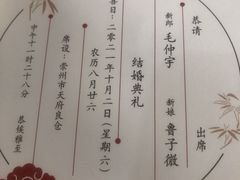 恭请
新郎 毛仲宇 新娘 鲁子微 出席
结婚典礼
日:二零二一年十月二日(星期六)
农历八月廿六
席设:崇州市天府良仓
中午十一时二十八分
恭候雅至